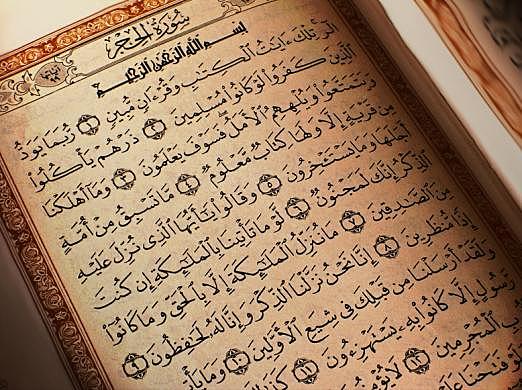 سُورَةُ الْحِجْرِ
بِسْمِ اللَّهِ الرَّحْمَٰنِ الرَّحِيمِ
الٓر تِلْكَ ءَايَٰتُ ٱلْكِتَٰبِ وَقُرْءَانٍ مُّبِينٍ ١ رُّبَمَا يَوَدُّ
ٱلَّذِينَ كَفَرُوا۟ لَوْ كَانُوا۟ مُسْلِمِينَ ٢ ذَرْهُمْ يَأْكُلُوا۟
وَيَتَمَتَّعُوا۟ وَيُلْهِهِمُ ٱلْأَمَلُ فَسَوْفَ يَعْلَمُونَ ٣ وَمَآ أَهْلَكْنَا
مِن قَرْيَةٍ إِلَّا وَلَهَا كِتَابٌ مَّعْلُومٌ ٤ مَّا تَسْبِقُ مِنْ أُمَّةٍ
أَجَلَهَا وَمَا يَسْتَـْٔخِرُونَ ٥ وَقَالُوا۟ يَٰٓأَيُّهَا ٱلَّذِى نُزِّلَ عَلَيْهِ
ٱلذِّكْرُ إِنَّكَ لَمَجْنُونٌ ٦ لَّوْ مَا تَأْتِينَا بِٱلْمَلَٰٓئِكَةِ إِن كُنتَ
مِنَ ٱلصَّٰدِقِينَ ٧ مَا نُنَزِّلُ ٱلْمَلَٰٓئِكَةَ إِلَّا بِٱلْحَقِّ وَمَا كَانُوٓا۟
إِذًا مُّنظَرِينَ ٨ إِنَّا نَحْنُ نَزَّلْنَا ٱلذِّكْرَ وَإِنَّا لَهُۥ لَحَٰفِظُونَ ٩
وَلَقَدْ أَرْسَلْنَا مِن قَبْلِكَ فِى شِيَعِ ٱلْأَوَّلِينَ ١٠ وَمَا يَأْ
رَّسُولٍ إِلَّا كَانُوا۟ بِهِۦ يَسْتَهْزِءُونَ ١١
ٱلْمُجْرِمِينَ ١٢ لَا
فَتَحْنَا